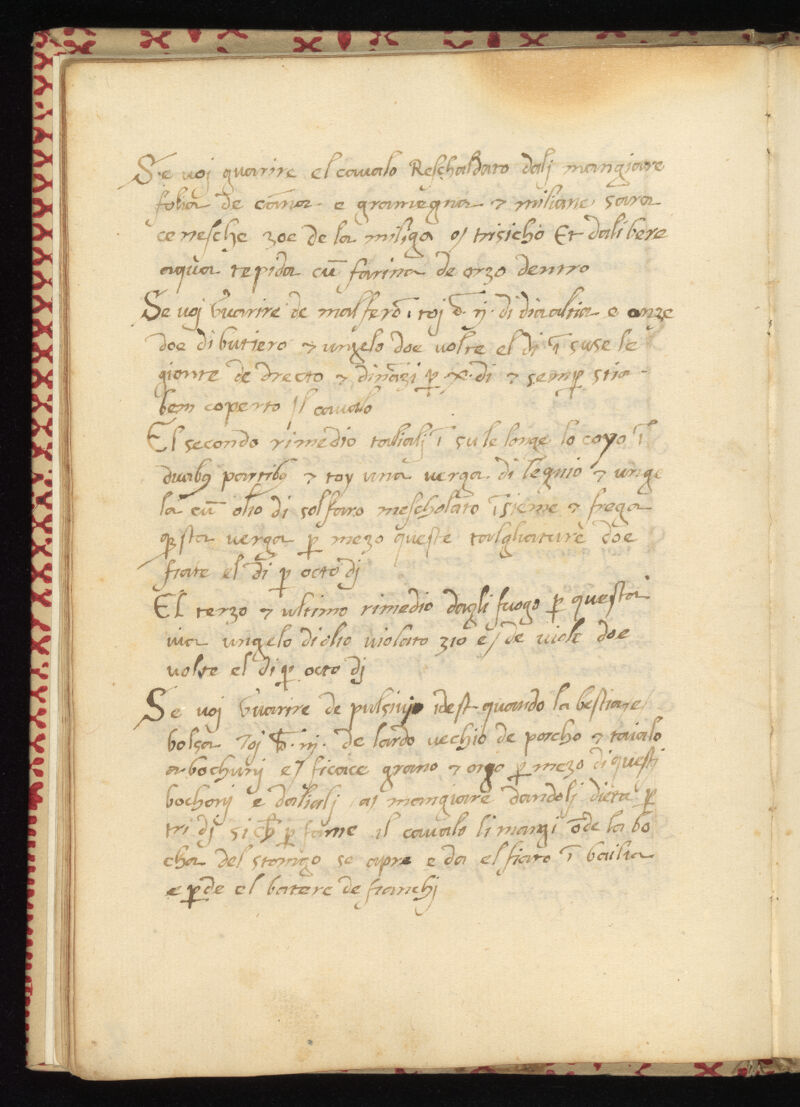 Se uoj guarire el caualo Reschaldato dalj mangiare
folia de cāna e gramegna ⁊ miliane sara
cenesche zoe de la miliga o/ trisicho Et dali bere
aqua tepida cū farina de orzo dentro
Se uoj guarire de malferō toj ij di diaaltia e onze
doe di butiero ⁊ ungelo doe uolte el di ī suse le
gionte de drecto ⁊ dināzi p x di ⁊ semp stia
bem coperto il caualo
El secondo rimedio talialj ī su le longe lo coyo ī
duabꝫ partibꝫ ⁊ toy una uerga di legnio ⁊ unge
la cū olio di solfaro mescholato īsieme ⁊ frega
questa uerga p mezo queste talgliature doe
fiate el di p octo dj
El terzo ⁊ ultimo rimedio dagli fuogo p questa
uia ungelo di olio uiolato zio e/ de uiole doe
uolte el di p octo dj
Se uoj guarire de pulsiuo idest quando la bestia e/
bolsa Toj iij de lardo uechio de porcho ⁊ taialo
a bochunj e/ ficace grano ⁊ orgo p mezo di questi
bochonj e dalialj a/ mangiare dandolj dieta p
tri dj si p fame il caualo li mangi ōde la bo
cha del stomago se apre e da el fiato ī bailia
e pde el batere de fianchj